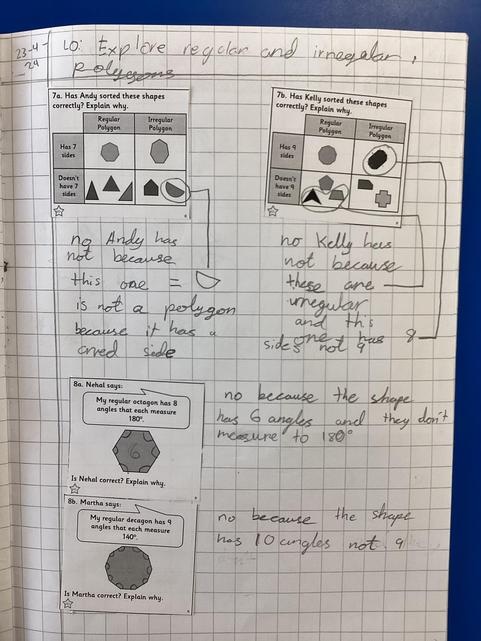 23-4-24
LO: Explore regular and irregular
polygons
7a. Has Andy sorted these shapes
correctly? Explain why.
Regular
Polygon
Irregular
Polygon
Has 7
sides
Doesn't
have 7
sides
no Andy has
not because
this one =
is not a polygon
because it has a
crved side
7b. Has Kelly sorted these shapes
correctly? Explain why.
Regular
Polygon
Irregular
Polygon
Has 9
sides
Doesn't
have 9
sides
no Kelly has
not because
these are
irregular
and this
one has 8
sides not 9
8a. Nehal says:
My regular octagon has 8
angles that each measure
180°.
6
Is Nehal correct? Explain why.
no because the shape
has 6 angles and they don't
measure to 180°
8b. Martha says:
My regular decagon has 9
angles that each measure
140°.
Is Martha correct? Explain why.
no because the shape
has 10 angles not 9